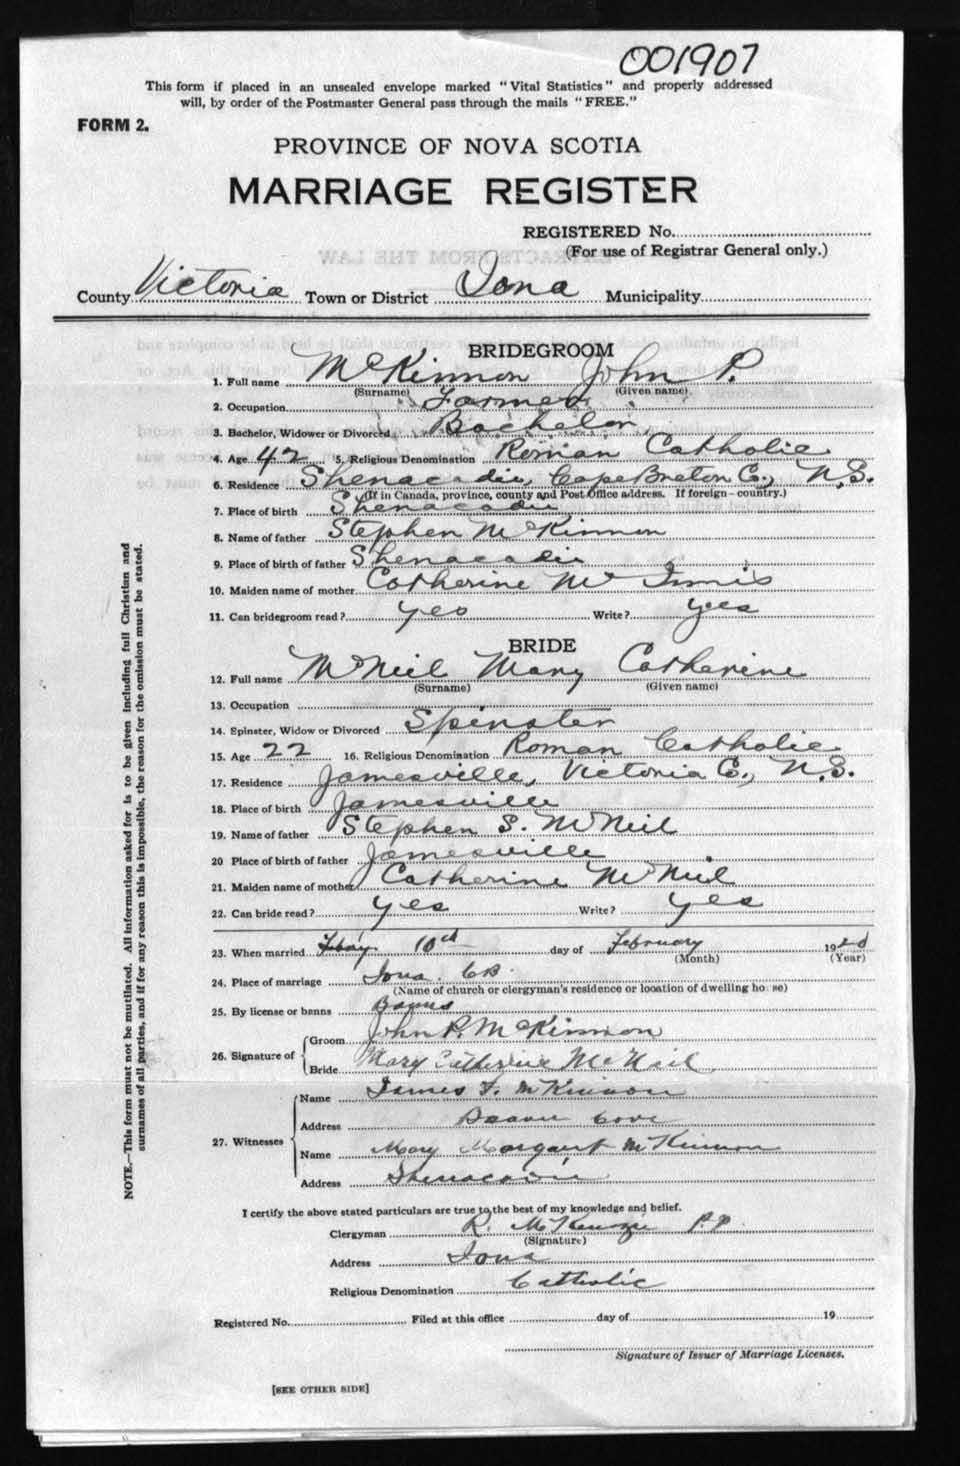 001907
This form if placed in an unsealed envelope marked "Vital Statistics" and properly addressed
will, by order of the Postmaster General pass through the mails "FREE."
FORM 2.
PROVINCE OF NOVA SCOTIA
MARRIAGE REGISTER
REGISTERED No.
(For use of Registrar General only.)
County Victoria Town or District Iona Municipality
BRIDEGROOM
1. Full name McKinnon John P.
(Surname) (Given name)
2. Occupation Farmer
3. Bachelor, Widower or Divorced Bachelor
4. Age 42 5. Religious Denomination Roman Catholic
6. Residence Shenacadie, Cape Breton Co., N.S.
(If in Canada, province, county and Post Office address. If foreign-country.)
7. Place of birth Shenacadie
8. Name of father Stephen McKinnon
9. Place of birth of father Shenacadie
10. Maiden name of mother Catherine McInnis
11. Can bridegroom read? yes Write? yes
BRIDE
12. Full name McNeil Mary Catherine
(Surname) (Given name)
13. Occupation
14. Spinster, Widow or Divorced Spinster
15. Age 22 16. Religious Denomination Roman Catholic
17. Residence Jamesville, Victoria Co., N.S.
18. Place of birth Jamesville
19. Name of father Stephen S. McNeil
20 Place of birth of father Jamesville
21. Maiden name of mother Catherine McNeil
22. Can bride read? yes Write? yes
23. When married 10th day of February 192
(Month) (Year)
24. Place of marriage Iona. C.B.
(Name of church or clergyman's residence or location of dwelling house)
25. By license or banns Banns
26. Signature of Groom John P. McKinnon
Bride Mary Catherine McNeil
27. Witnesses Name James F. McKinnon
Address Beaver Cove
Name Mary Margaret McKinnon
Address Shenacadie
I certify the above stated particulars are true to the best of my knowledge and belief.
Clergyman R. McKenzie P.P.
(Signature)
Address Iona
Religious Denomination Catholic
Registered No. Filed at this office day of 19
Signature of Issuer of Marriage Licenses.
[SEE OTHER SIDE]
NOTE.—This form must not be mutilated. All information asked for is to be given including full Christian and
surnames of all parties, and if for any reason this is impossible, the reason for the omission must be stated.